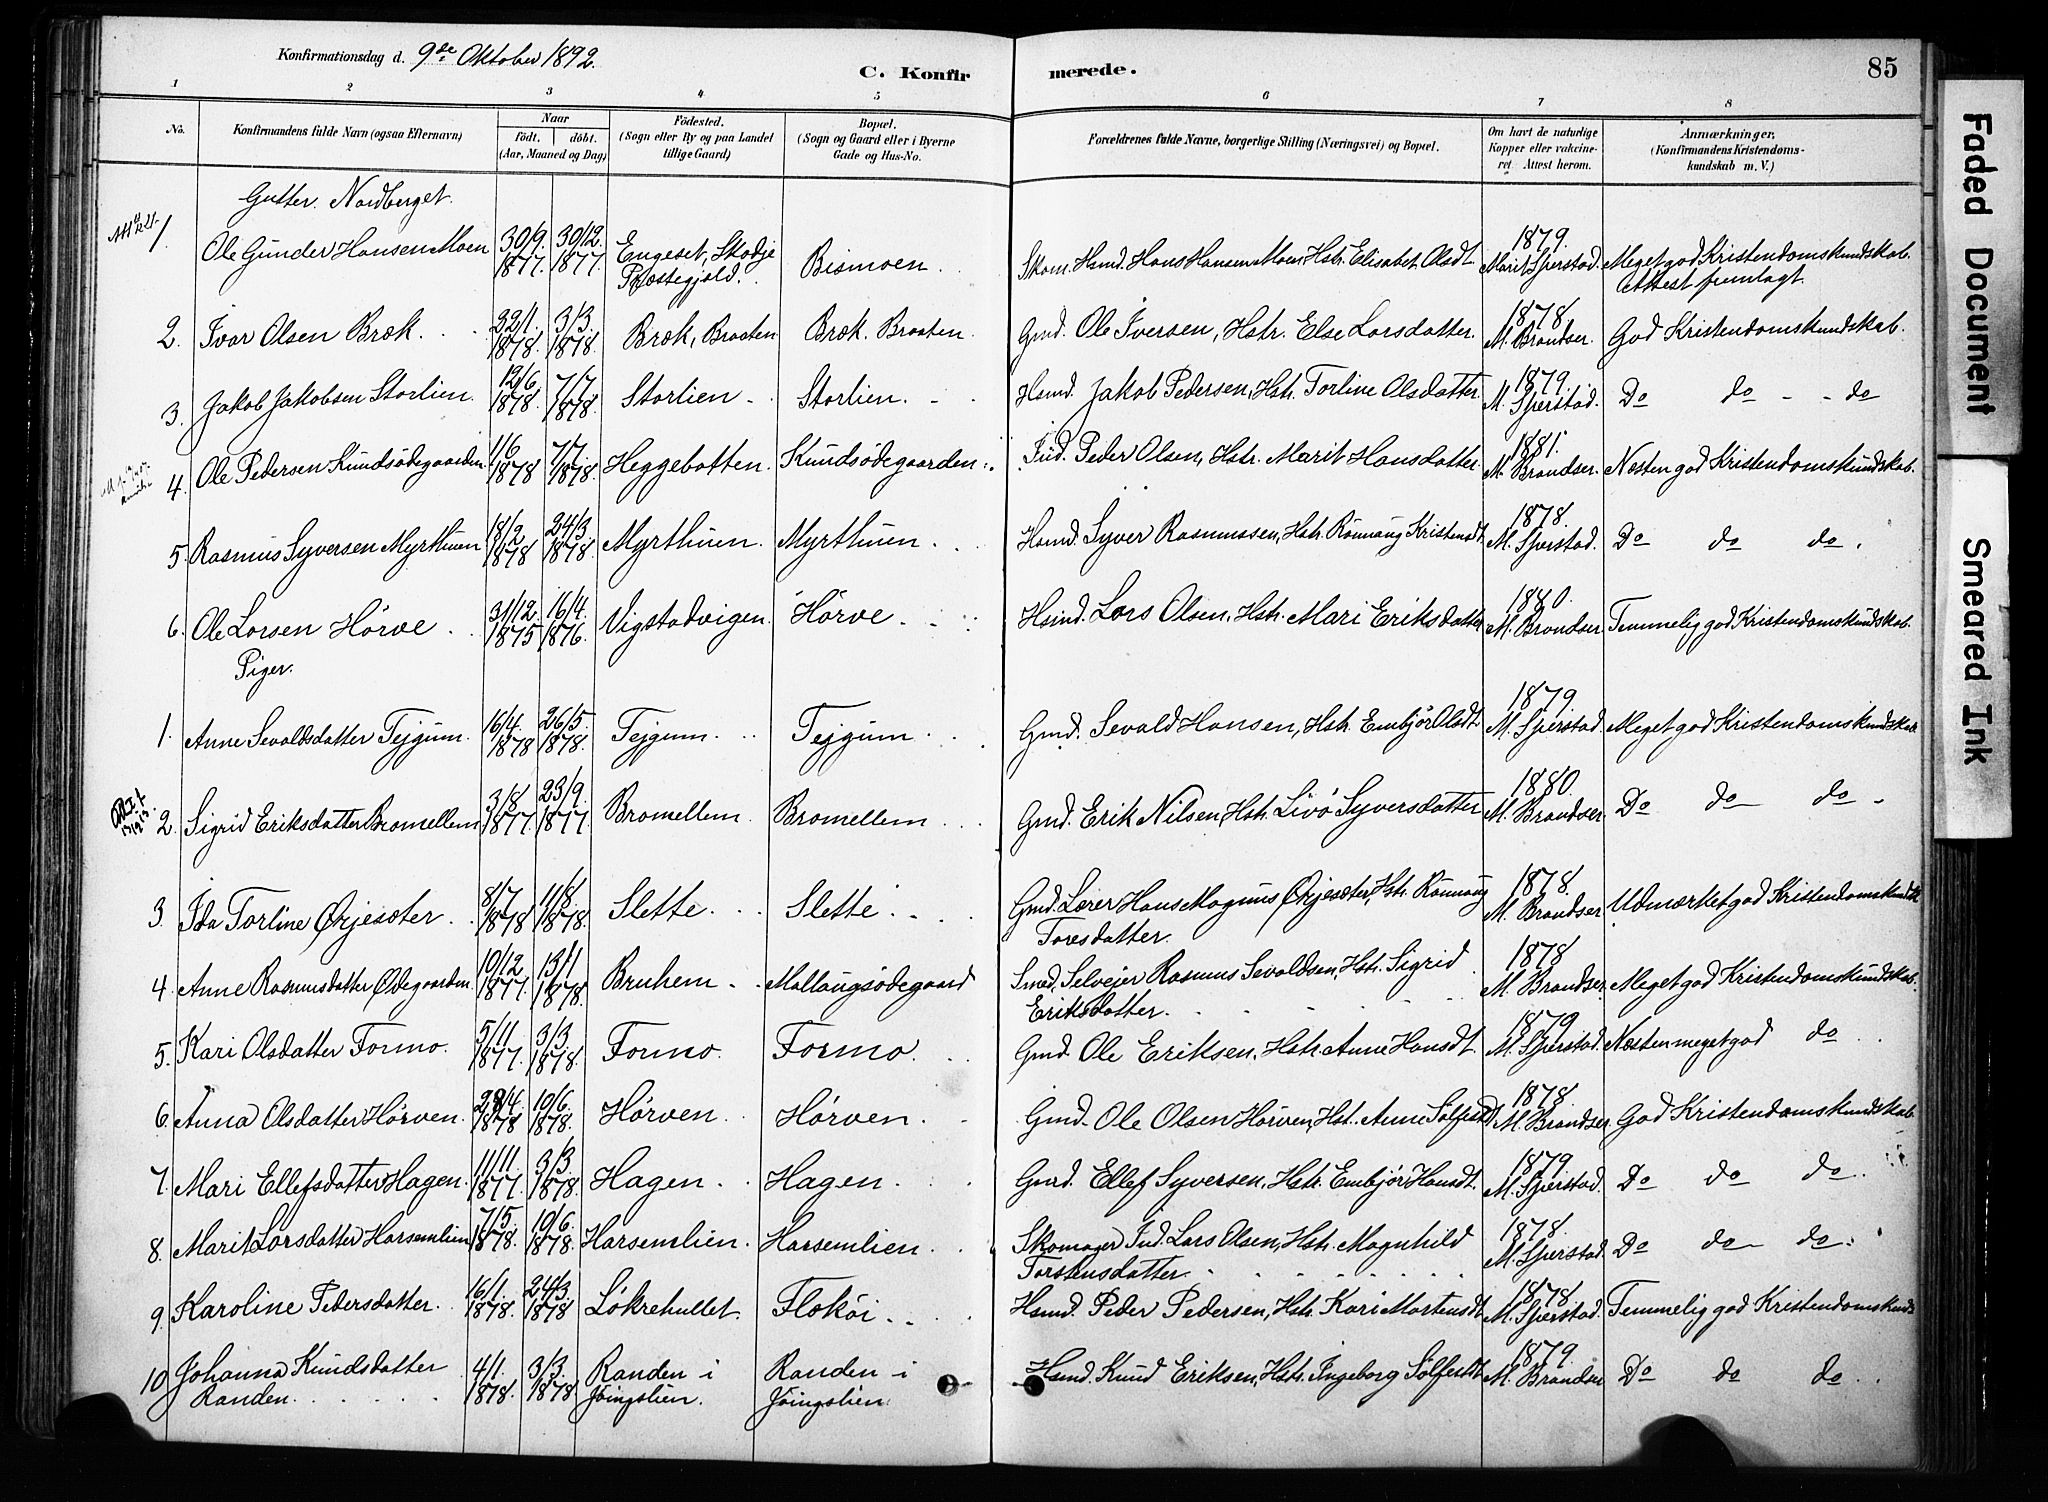 Konfirmationsdag d. 9de Oktober 1892.
C. Konfirmerede.
85
1 2 3 4 5 6 7 8
No. Konfirmandens fulde Navn (ogsaa Efternavn) Naar födt. döbt. (Aar, Maaned og Dag) Födested. (Sogn eller By og paa Landet tillige Gaard) Bopæl. (Sogn og Gaard eller i Byerne Gade og Hus-No. Forældrenes fulde Navne, borgerlige Stilling (Næringsvei) og Bopæl. Om havt de naturlige Kopper eller vakcineret. Attest herom. Anmærkninger. (Konfirmandens Kristendomskundskab m. V.)
Gutter. Nordberget.
1. Ole Gunder Hansen Moen 30/9. 1877. 30/12. 1877. Engeset, Skodje Præstegjeld. Bismoen Skom. Hsmd. Hans Hansen Moen, Hstr. Elisabet Olsdt. 1879. Marit Sperstad. Meget god Kristendomskundskab. Attest fremlagt.
2. Ivar Olsen Bræk. 1878. 3/3. 1878. Bræk, Braaten Bræk. Braaten. Gmd. Ole Iversen, Hstr. Else Larsdatter. 1878. M. Brandser. God Kristendomskundskab.
3. Jakob Jakobsen Storlien. 12/6. 1878. 7/7. 1878. Storlien Storlien. Hsmd. Jakob Pedersen, Hstr. Torline Olsdatter. 1879. M. Sperstad. Do do do
4. Ole Pedersen Knudsødegaarden 1878 7/7. 1878. Heggebotten. Knudsødegaarden Ind. Peder Olsen, Hstr. Marit Hansdatter. 1881. M. Brandser. Næsten god Kristendomskundskab.
5. Rasmus Syversen Myrthuen 18/2 1878 24/3. 1878. Myrthuen. Myrthuen Hsmd. Syver Rasmussen, Hstr. Rønnaug Kristensdt. 1878. M. Sperstad. Do do do.
6. Ole Larsen Hörve 31/12 1875 16/4. 1876. Vigstadvigen. Hörve Hsmd. Lars Olsen, Hstr. Mari Eriksdatter 1880. M. Brandser. Temmelig god Kristendomskundskab.
Piger.
1. Anne Sevaldsdatter Tejgum. 16/4. 1878 26/5. 1878. Tejgum. Tejgum Gmd. Sevald Hansen, Hstr. Embjör Olsdt. 1879. M. Sperstad. Meget god Kristendomskundskab
2. Sigrid Eriksdatter Bromellem 3/8 1877. 23/9. 1877. Bromellem. Bromellem Gmd. Erik Nilsen, Hstr. Livø Syversdatter 1880. M. Brandser. Do do do
3. Ida Torline Øxjesæter. 8/7 1878 11/8. 1878. Slette. Slette Gmd. Lærer Hans Magnus Øxjesæter, Hstr. Rønnaug Toresdatter. 1878. M. Brandser. Udmærket god Kristendomskundsk
4. Anne Rasmusdatter Ødegaarden. 10/12 1877. 13/1 1878. Bruhem Mallaugsødegaard Smed, Selvejer Rasmus Sevaldsen, Hstr. Sigrid Eriksdatter. 1878 M. Brandser. Meget god Kristendomskundskab.
5. Kari Olsdatter Formo. 5/11 1877. 3/3. 1878. Formo. Formo. Gmd. Ole Eriksen, Hstr. Anne Hansdt. 1879 M. Sperstad. Næsten meget god do
6. Anna Olsdatter Hörven. 1878 10/6. 1878. Hörven. Hörven. Gmd. Ole Olsen Hörven, Hstr. Anne Solfestdt. 1878. M. Brandser. God Kristendomskundskab
7. Mari Ellefsdatter Hagen. 11/11. 1877. 3/3. 1878. Hagen. Hagen. Gmd. Ellef Syversen, Hstr. Embjör Hansdt. 1879. M. Sperstad. Do do do.
8. Marit Larsdatter Harsemlien 7/5. 1878. 10/6. 1878. Harsemlien. Harsemlien. Skomager Ind. Lars Olsen, Hstr. Magnhild Torstensdatter. 1878. M. Sperstad. Do do do.
9. Karoline Pedersdatter. 16/1. 1878. 24/3. 1878 Løkrehullet. Flekøi Hsmd. Peder Pedersen, Hstr. Kari Mortensdt. 1878 M. Sperstad. Temmelig god Kristendomskunds
10. Johanna Knudsdatter Randen. 4/1. 1878. 3/3. 1878 Randen i Jöingslien. Randen i Jöingslien. Hsmd. Knud Eriksen, Hstr. Ingeborg Solfestdt 1879. M. Brandser Do do do
Faded Document
Smeared Ink